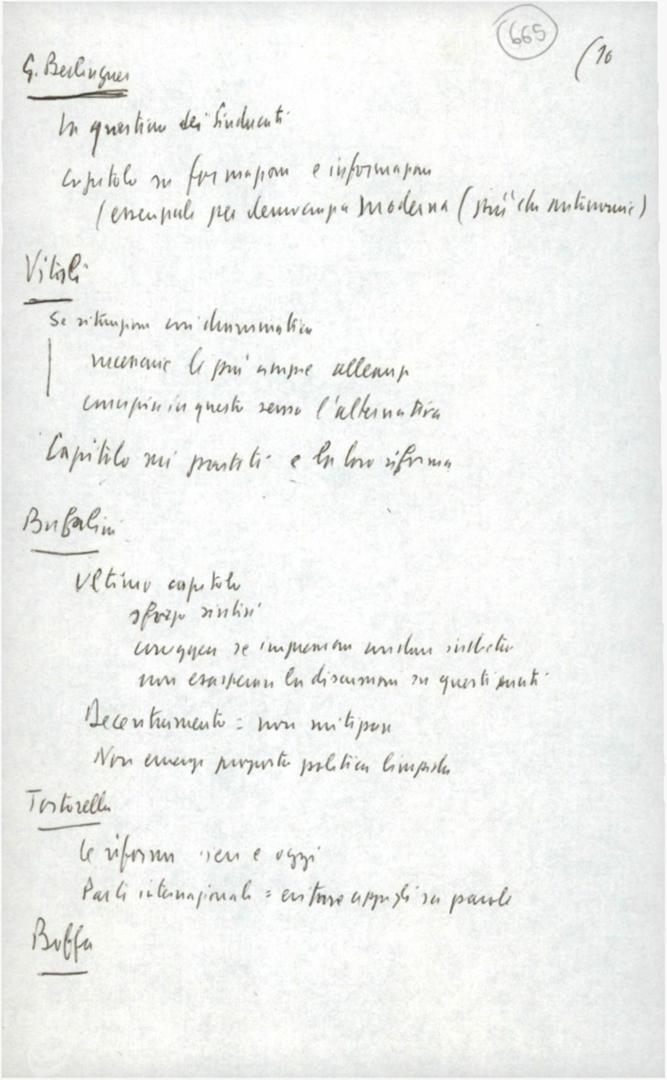 665
(10
G. Berlinguer
La questione dei sindacati
Capitolo su formazione e informazione
(essenziale per democrazia moderna (più che
Vitali
Se situazione così drammatica
necessarie le più ampie alleanze
in questo senso l'alternativa
Capitolo sui partiti e la loro riforma
Bufalini
Ultimo capitolo
sforzo sintesi
se
non esasperare la discussione su questi punti
Decentramento = non
Non emerge proposta politica limpida
Tortorella
Le riforme ieri e oggi
Parte internazionale = evitare appigli su parole
Boffa